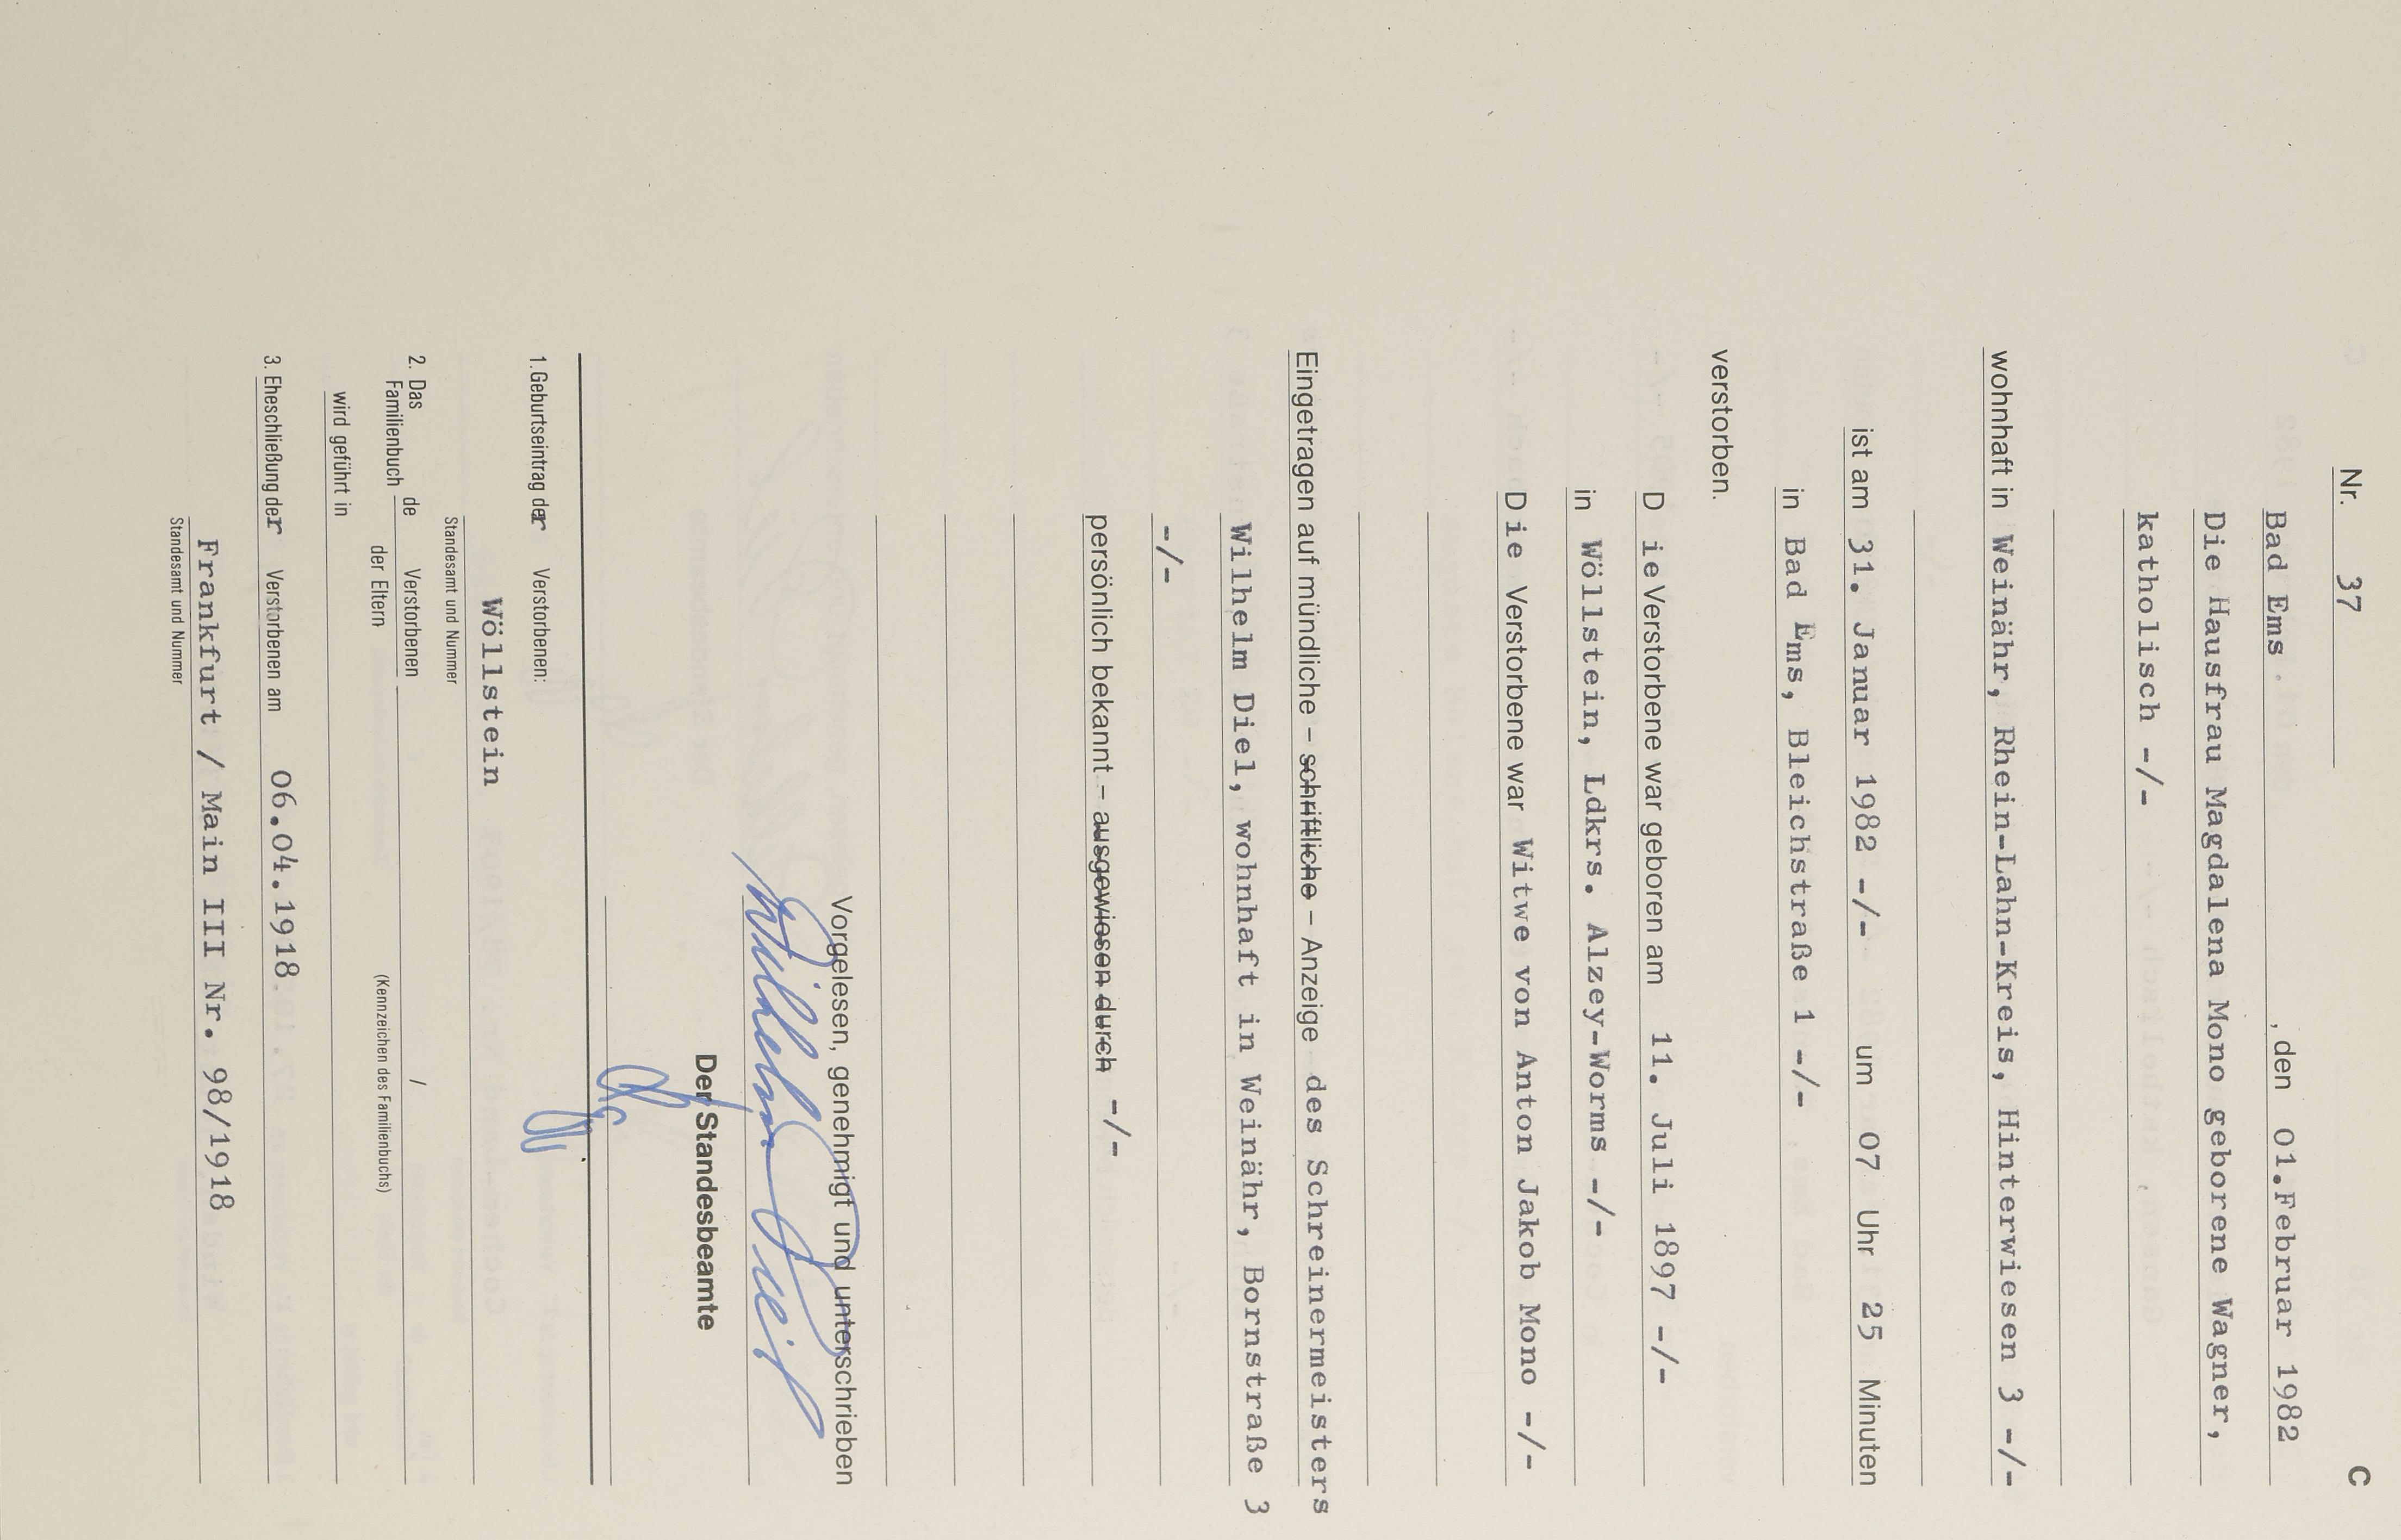 C
Nr. 37
Bad Ems , den 01.Februar 1982
Die Hausfrau Magdalena Mono geborene Wagner,
katholisch -/-
wohnhaft in Weinähr, Rhein-Lahn-Kreis, Hinterwiesen 3 -/-
ist am 31. Januar 1982 -/- um 07 Uhr 25 Minuten
in Bad Ems, Bleichstraße 1 -/-
verstorben.
D ie Verstorbene war geboren am 11. Juli 1897 -/-
in Wöllstein, Ldkrs. Alzey-Worms -/-
D ie Verstorbene war Witwe von Anton Jakob Mono -/-
Eingetragen auf mündliche – schriftliche – Anzeige des Schreinermeisters
Wilhelm Diel, wohnhaft in Weinähr, Bornstraße 3
-/-
persönlich bekannt – ausgewiesen durch -/-
Vorgelesen, genehmigt und unterschrieben
Wilhelm Diel
Der Standesbeamte
1. Geburtseintrag der Verstorbenen:
Wöllstein
Standesamt und Nummer
2. Das Familienbuch de Verstorbenen /
der Eltern (Kennzeichen des Familienbuchs)
wird geführt in
3. Eheschließung der Verstorbenen am 06.04.1918
Frankfurt / Main III Nr. 98/1918
Standesamt und Nummer